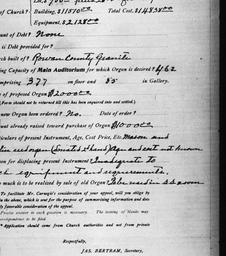 of Church? Building, $11570.00 Total Cost, $14838.00
Equipment, $2128.00
unt of Debt? None
is Debt provided for?
rch built of? Rowan County Granite
ing Capacity of Main Auditorium for which Organ is desired? 462
mprising 377 on floor cost 85 in Gallery.
of proposed Organ $2000.00
(Form should not be returned till this has been enquired into and settled.)
new Organ been ordered? No. Date of order?
unt already raised toward purchase of Organ $1000.00
iculars of present Instrument, Age, Cost and Price, Etc. Mason and
organ Age and cost not known
on for displacing present Instrument? Inadequate to
equipment and requirements.
much is to be realized by sale of old Organ?
To facilitate Mr. Carnegie's consideration of your appeal, will you oblige by
in the above, which is sent for the purpose of summarizing information and does
ably foretell favorable consideration of the appeal.
Precise answer to each question is necessary. The coming of Hands may
correspondence to be of
* Application should come from Church authorities and not from private
Respectfully,
JAS. BERTRAM, Secretary,